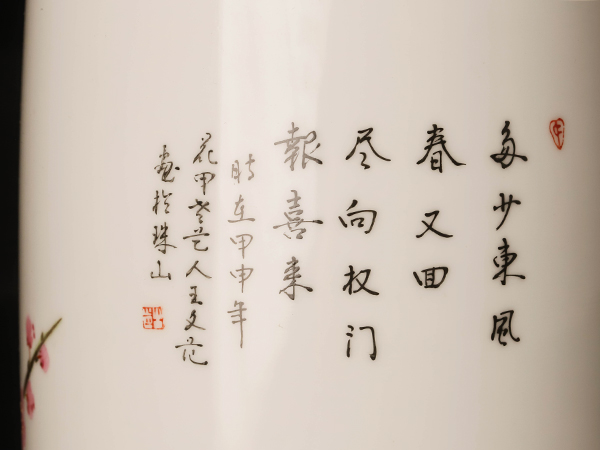 多少東風
春又回
尽向权门
報喜来
時在甲申年
花甲老艺人王文范
畫於珠山